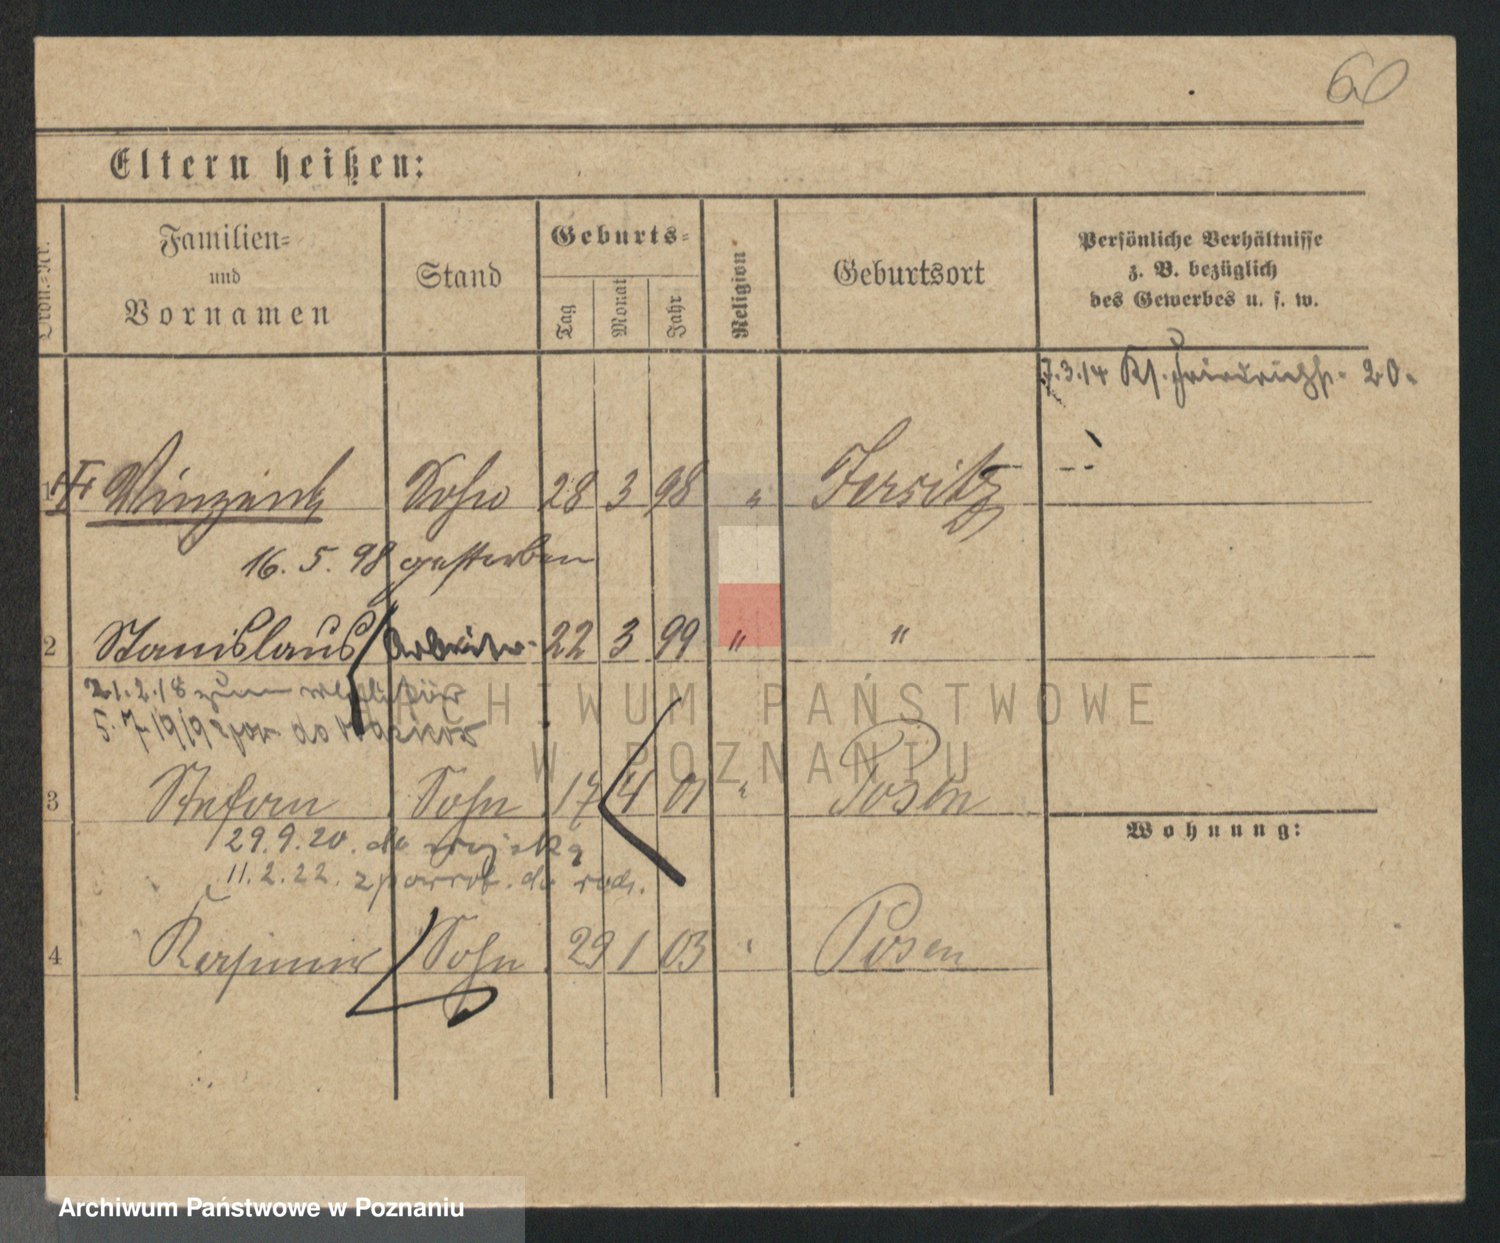 60
Eltern heißen:
Ordn.-Nr.
Familien-
und
Vornamen
Stand
Geburts-
Tag
Monat
Jahr
Religion
Geburtsort
Persönliche Verhältnisse
z. B. bezüglich
des Gewerbes u. s. w.
7.3.14 Kl. Friedrichstr. 20.
1 Vinzent Sohn 28 3 98 " Jersitz
16. 5. 98 gestorben
2 Stanislaus Arbeiter 22 3 99 " "
21.2.18 zum
5.7.1919 do
3 Stefan Sohn 17 4 01 " Posen
29.9.20. do wojska
11.2.22. z powrot. do rodz.
Wohnung:
4 Kasimir Sohn 29 1 03 " Posen
ARCHIWUM PAŃSTWOWE
W POZNANIU
Archiwum Państwowe w Poznaniu